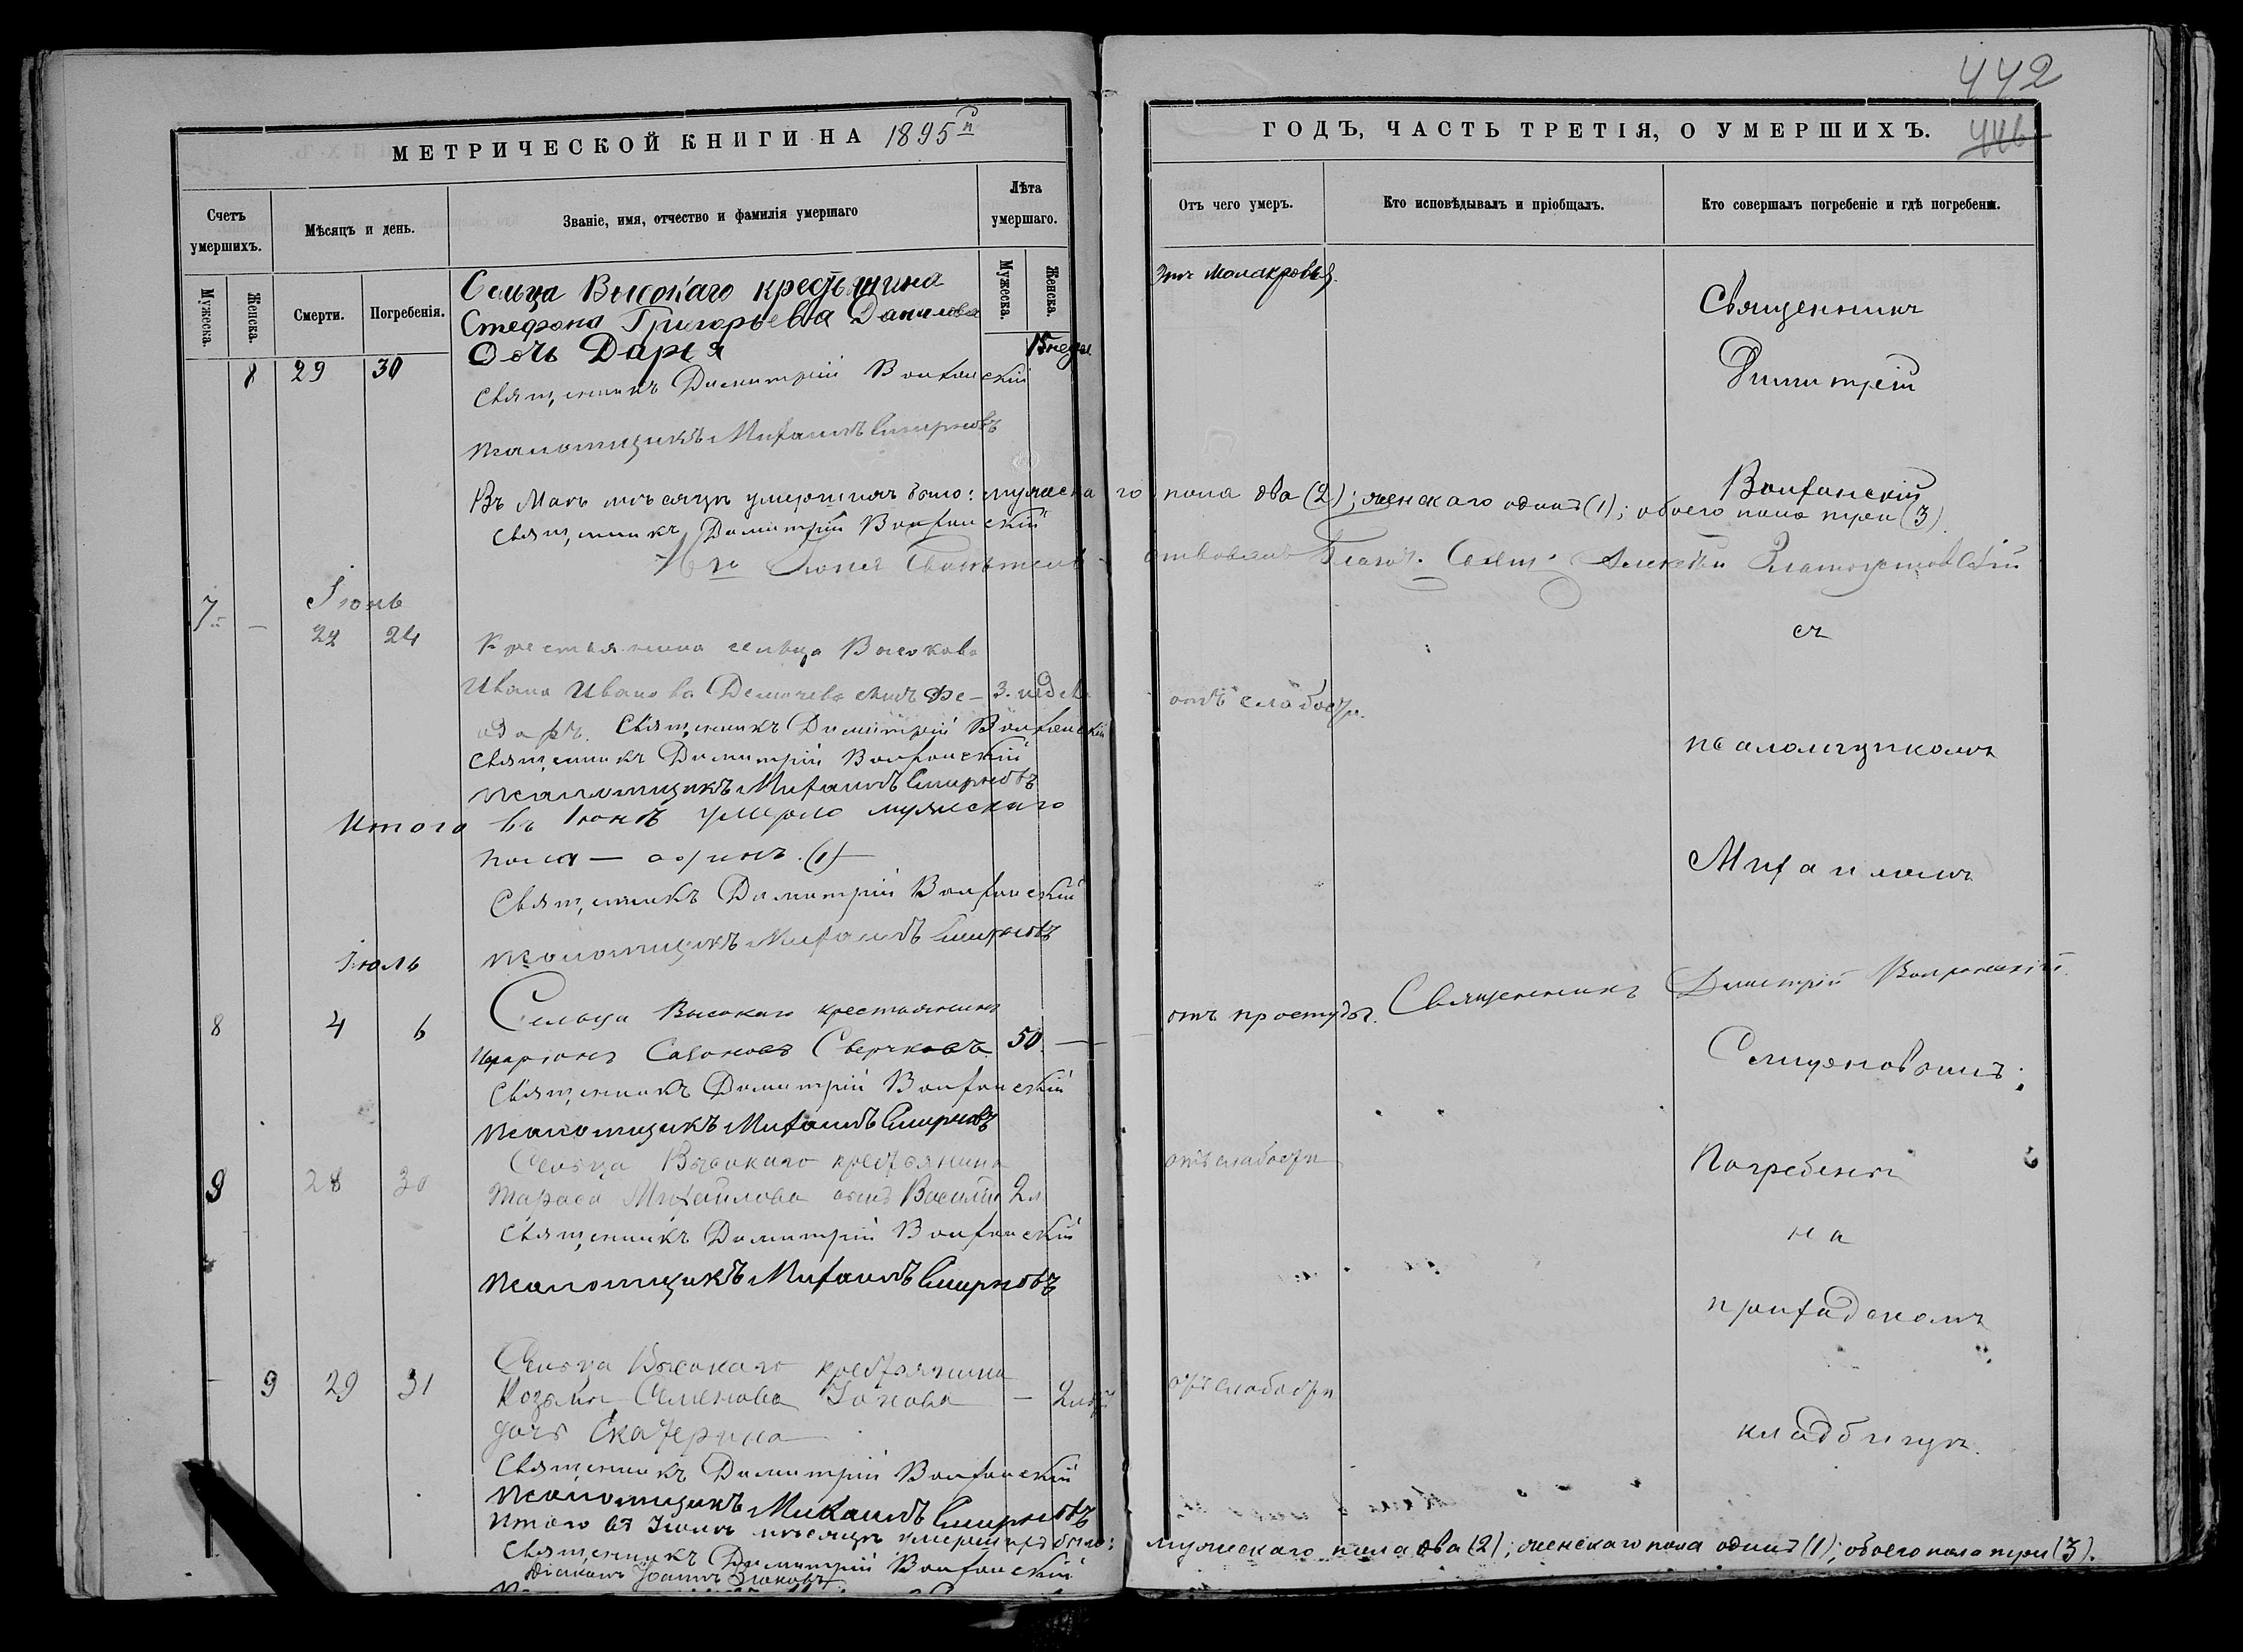 442
446
МЕТРИЧЕСКОЙ КНИГИ НА 1895й
Счетъ умершихъ.
Мѣсяцъ и день.
Званіе, имя, отчество и фамилія умершаго
Лѣта умершаго.
Мужеска.
Женска.
Смерти.
Погребенія.
Мужеска.
Женска.
Сельца Высокаго крестьянина
Стефана Григорьева Данилова
8 29 30 дочь Дарья 15 недел.
Священникъ Димитрій
Псаломщикъ Михаилъ Смирновъ
Въ Маѣ мѣсяцѣ умершихъ было: мужеска
Священникъ Димитрій
Іюнь
7 — 22 24
Крестьянина сельца Высокова
Ивана Иванова сынъ Фе- 3. недел.
Священникъ Димитрій
Священникъ Димитрій
Псаломщикъ Михаилъ Смирновъ
Итого въ Іюнѣ умерло мужескаго
пола — одинъ (1) —
Священникъ Димитрій
Псаломщикъ Михаилъ Смирновъ
Іюль
Сельца Высокаго крестьянинъ
8 4 6 Сверчковъ 50. —
Священникъ Димитрій
Псаломщикъ Михаилъ Смирновъ
Сельца Высокаго крестьянина
9 28 30 Тараса Михайлова сынъ Василій 2 л
Священникъ Димитрій
Псаломщикъ Михаилъ Смирновъ
Сельца Высокаго крестьянина
— 9 29 31 Козьмы Семенова —
дочь Екатерина
Священникъ Димитрій
Псаломщикъ Михаилъ Смирновъ
Итого въ Іюлѣ мѣсяцѣ умершихъ было:
Священникъ Димитрій
Діаконъ Іоаннъ
ГОДЪ, ЧАСТЬ ТРЕТІЯ, О УМЕРШИХЪ.
Отъ чего умеръ.
Кто исповѣдывалъ и пріобщалъ.
Кто совершалъ погребеніе и гдѣ погребены.
отъ малокровія.
Священникъ
Димитрій
го пола два (2); женскаго одинъ (1); обоего пола три (3).
Свящ. Алексѣй Златоустовскій
съ
отъ слабости.
псаломщикомъ
Михаиломъ
отъ простуды. Священникъ Димитрій
отъ слабости
Погребены
на
приходскомъ
отъ слабости
кладбищѣ.
мужескаго пола два (2); женскаго пола одинъ (1); обоего пола три (3).